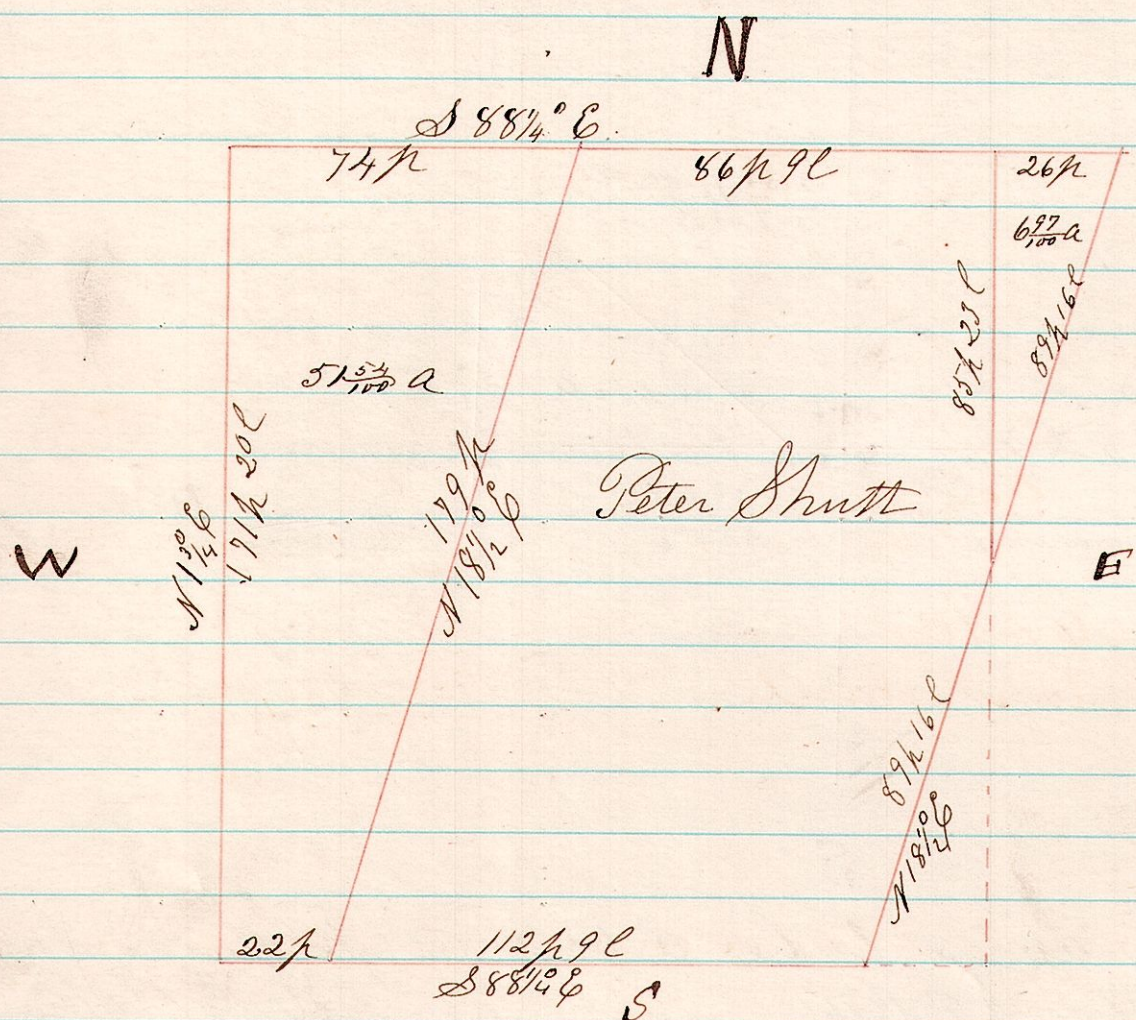 N
S 88¼° E.
74p
86p 9l
26p
6 97/100 a
85p 23l
89p 16l
51 54/100 a
N 1¾° E
171p 20l
179p
N 18½° E
Peter Shutt
W
E
89p 16l
N 18½° E
22p
112p 9l
S 88¼° E
S